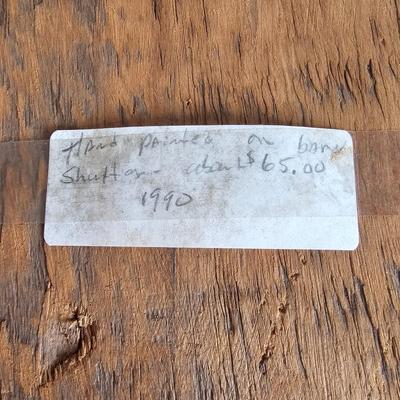 Hand painted on barn
Shutter about $65.00
1990